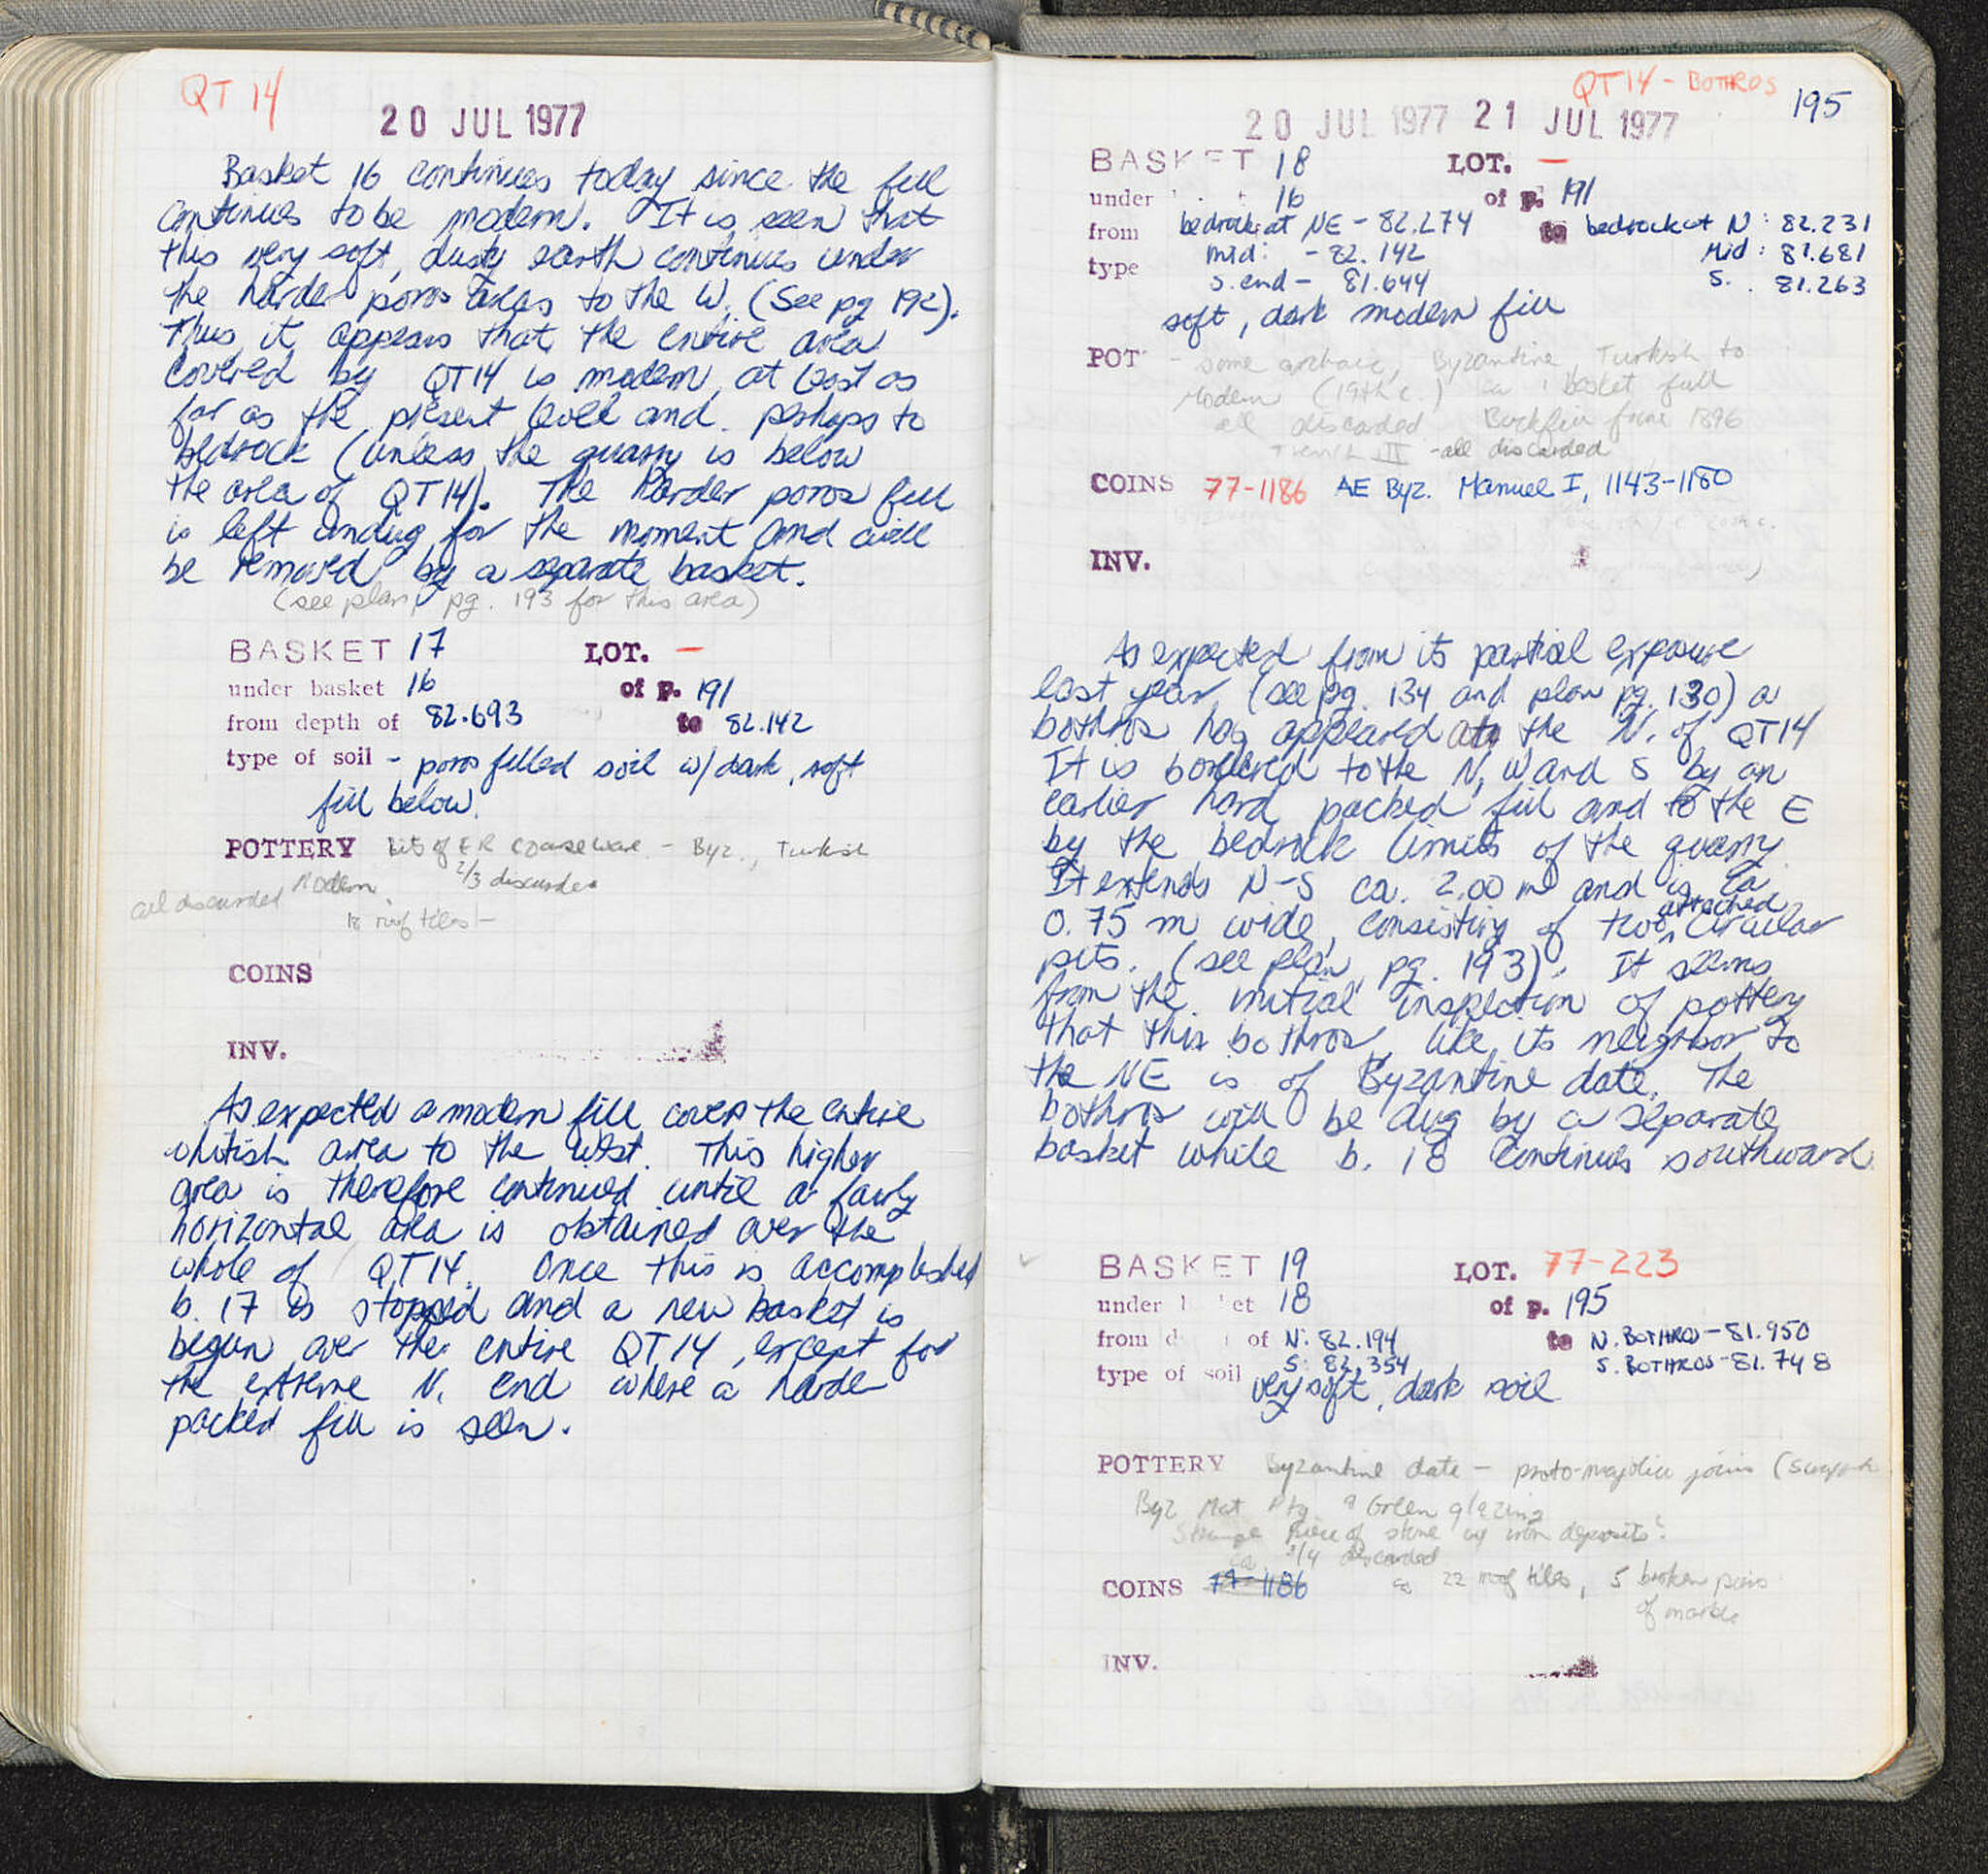 QT 14
20 JUL 1977
Basket 16 continues today since the fill
continues to be modern. It is seen that
this very soft, dusty earth continues under
the harder poros areas to the W. (See pg 192).
Thus it appears that the entire area
covered by QT14 is modern, at least as
far as the present level and perhaps to
bedrock (unless the quarry is below
the area of QT14). The harder poros fill
is left undug for the moment and will
be removed by a separate basket.
(see plan, pg. 193 for this area)
BASKET 17 LOT. —
under basket 16 of p. 191
from depth of 82.693 to 82.142
type of soil - poros filled soil w/ dark, soft
fill below.
POTTERY bits of ER coarse ware - Byz., Turkish
Modern 2/3 discarded
all discarded
18 roof tiles -
COINS
INV.
As expected a modern fill covers the entire
whitish area to the West. This higher
area is therefore continued until a fairly
horizontal area is obtained over the
whole of QT14. Once this is accomplished
b. 17 is stopped and a new basket is
begun over the entire QT14, except for
the extreme N. end where a harder
packed fill is seen.
QT14 - BOTHROS 195
20 JUL 1977 21 JUL 1977
BASKET 18 LOT. —
under 16 of p. 191
from bedrock at NE - 82.274 to bedrock at N: 82.231
mid: - 82.142 Mid: 81.681
type S. end - 81.644 S. : 81.263
soft, dark modern fill
POT - some archaic, Byzantine Turkish to
Modern (19th c.) ca 1 basket full
all discarded Backfill from 1896
Trench III - all discarded
COINS 77-1186 AE Byz. Manuel I, 1143-1180
INV.
As expected from its partial exposure
last year, (see pg. 134 and plan pg. 130) a
bothros has appeared at the N. of QT14
It is bordered to the N, W and S by an
earlier hard packed fill and to the E
by the bedrock limits of the quarry.
It extends N-S ca. 2.00 m and is ca
0.75 m wide, consisting of two attached circular
pits. (see plan, pg. 193). It seems
from the initial inspection of pottery
that this bothros, like its neighbor to
the NE is of Byzantine date. The
bothros will be dug by a separate
basket while b. 18 continues southward.
BASKET 19 LOT. 77-223
under et 18 of p. 195
from d of N: 82.194 to N. BOTHROS - 81.950
S: 82.354 S. BOTHROS - 81.748
type of soil very soft, dark soil
POTTERY Byzantine date - proto-majolica joins
Byz Mat Ptg. Green glazing
Strange Piece of stone w/ iron deposits?
ca 3/4 discarded
COINS 77-1186 ca 22 roof tiles, 5 broken
of marble
INV.